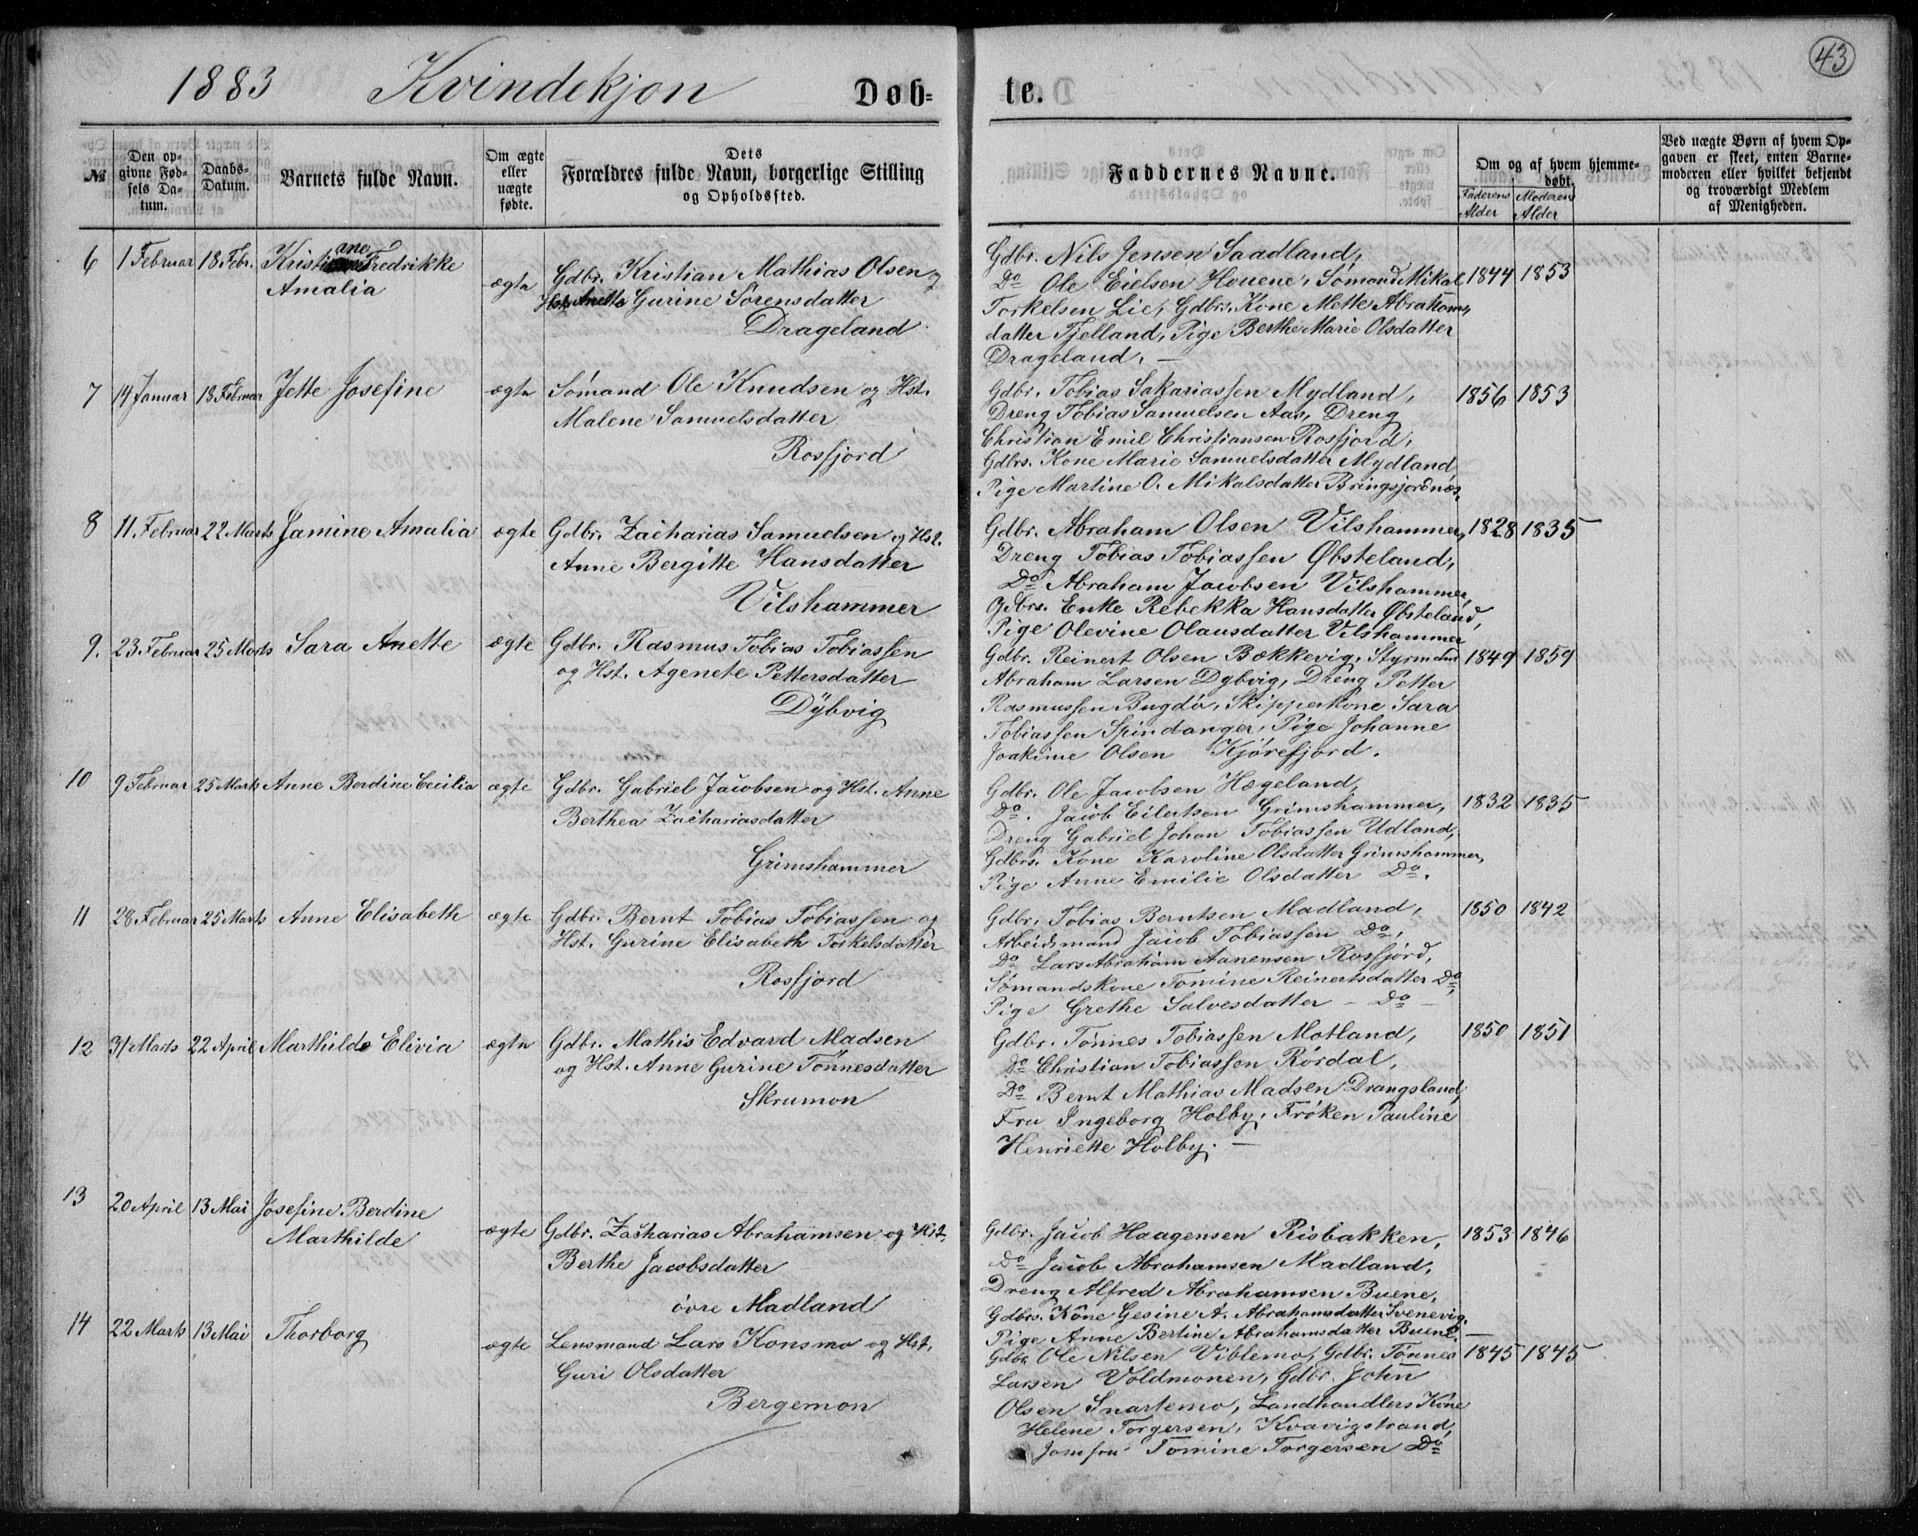 1883 Kvindekjøn Døb= te. 43
№
Den op-
givne Fød-
sels Da-
tum.
Daabs-
Datum.
Barnets fulde Navn.
Om ægte
eller
uægte
fødte.
Dets
Forældres fulde Navn, borgerlige Stilling
og Opholdssted.
Faddernes Navne.
Om og af hvem hjemme-
døbt.
Faderens
Alder
Moderens
Alder
Ved uægte Børn af hvem Op-
gaven er skeet, enten Barne-
moderen eller hvilket bekjendt
og troværdigt Medlem
af Menigheden.
6 1 Februar 18 Febr. Kristiane Fredrikke
Amalia
ægte
Gdbr. Kristian Mathias Olsen og
Hst. Anette Gurine Sørensdatter
Drageland
Gdbr. Nils Jensen Saadland,
Do Ole Eielsen Houene, Sømand Mikal
Torkelsen Lie, Gdbrs. Kone Mette Abrahams
datter Fjelland, Pige Berthe Marie Olsdatter
Drageland. —
1844 1853
7 14 Januar 18 Februar Jette Josefine
ægte
Sømand Ole Knudsen og Hst.
Malene Samuelsdatter
Rosfjord
Gdbr. Tobias Sakariassen Mydland,
Dreng Tobias Samuelsen Aas, Dreng
Christian Emil Christiansen Rosfjord,
Gdbrs. Kone Marie Samuelsdatter Mydland
Pige Martine O. Mikalsdatter Bringsjordnæs,
1856 1853
8 11. Februar 22 Marts Jamine Amalia
ægte
Gdbr. Zacharias Samuelsen og Hst.
Anne Bergitte Hansdatter
Vilshammer
Gdbr. Abraham Olsen Vilshammer,
Dreng Tobias Tobiassen Øbsteland,
Do Abraham Jacobsen Vilshammer,
Gdbrs. Enke Rebekka Hansdatter Øbsteland,
Pige Olevine Olausdatter Vilshammer
1828 1835
9. 23. Februar 25 Marts Sara Anette
ægte
Gdbr. Rasmus Tobias Tobiassen
og Hst. Agenete Pettersdatter
Dybvig
Gdbr. Reinert Olsen Bækkevig, Styrmand
Abraham Larsen Dybvig, Dreng Petter
Rasmussen Bugdø, Skipperkone Sara
Tobiassen Spindanger, Pige Johanne
Joakime Olsen Kjørefjord.
1849 1859
10 9 Februar 25 Marts Anne Berdine Cecilia
ægte
Gdbr. Gabriel Jacobsen og Hst. Anne
Berthea Zachariasdatter
Grimshammer
Gdbr. Ole Jacobsen Hægeland,
Do. Jacob Eilertsen Grimshammer,
Dreng Gabriel Johan Tobiassen Udland,
Gdbrs. Kone Karoline Olsdatter Grimshammer,
Pige Anne Emilie Olsdatter Do.
1832 1835
11 28. Februar 25 Marts Anne Elisabeth
ægte
Gdbr. Bernt Tobias Tobiassen og
Hst. Gurine Elisabeth Torkelsdatter
Rosfjord
Gdbr. Tobias Berntsen Madland,
Arbeidsmand Jacob Tobiassen Do,
Do Lars Abraham Aanensen Rosfjord,
Sømandskone Tomine Reinertsdatter Do,
Pige Grethe Salvesdatter — Do —
1850 1842
12 31 Marts 22 April Marthilde Elivia
ægte
Gdbr. Mathis Edvard Madsen
og Hst. Anne Gurine Tønnesdatter
Skrumon
Gdbr. Tønnes Tobiassen Motland,
Do Christian Tobiassen Rørdal,
Do Bernt Mathias Madsen Drangsland,
Fru Ingeborg Holby, Frøken Pauline
Henriette Holby. —
1850 1851
13 20 April 13 Mai Josefine Berdine
Marthilde
ægte
Gdbr. Zacharias Abrahamsen og Hst.
Berthe Jacobsdatter
øvre Madland
Gdbr. Jacob Haagensen Risbakken,
Do Jacob Abrahamsen Madland,
Dreng Alfred Abrahamsen Buene,
Gdbrs. Kone Gesine A. Abrahamsdatter Svenevig,
Pige Anne Bertine Abrahamsdatter Buene. —
1853 1846
14 22 Marts 13 Mai Thorborg
ægte
Lensmand Lars Konsmo og Hst.
Guri Olsdatter
Bergemon
Gdbr. Ole Nilsen Viblemo, Gdbr. Tønnes
Larsen Voldmonen, Gdbr. John
Olsen Snartemo, Landhandlers Kone
Helene Torgersen, Kvavigstrand,
Jomfru Tomine Torgersen Do
1845 1845